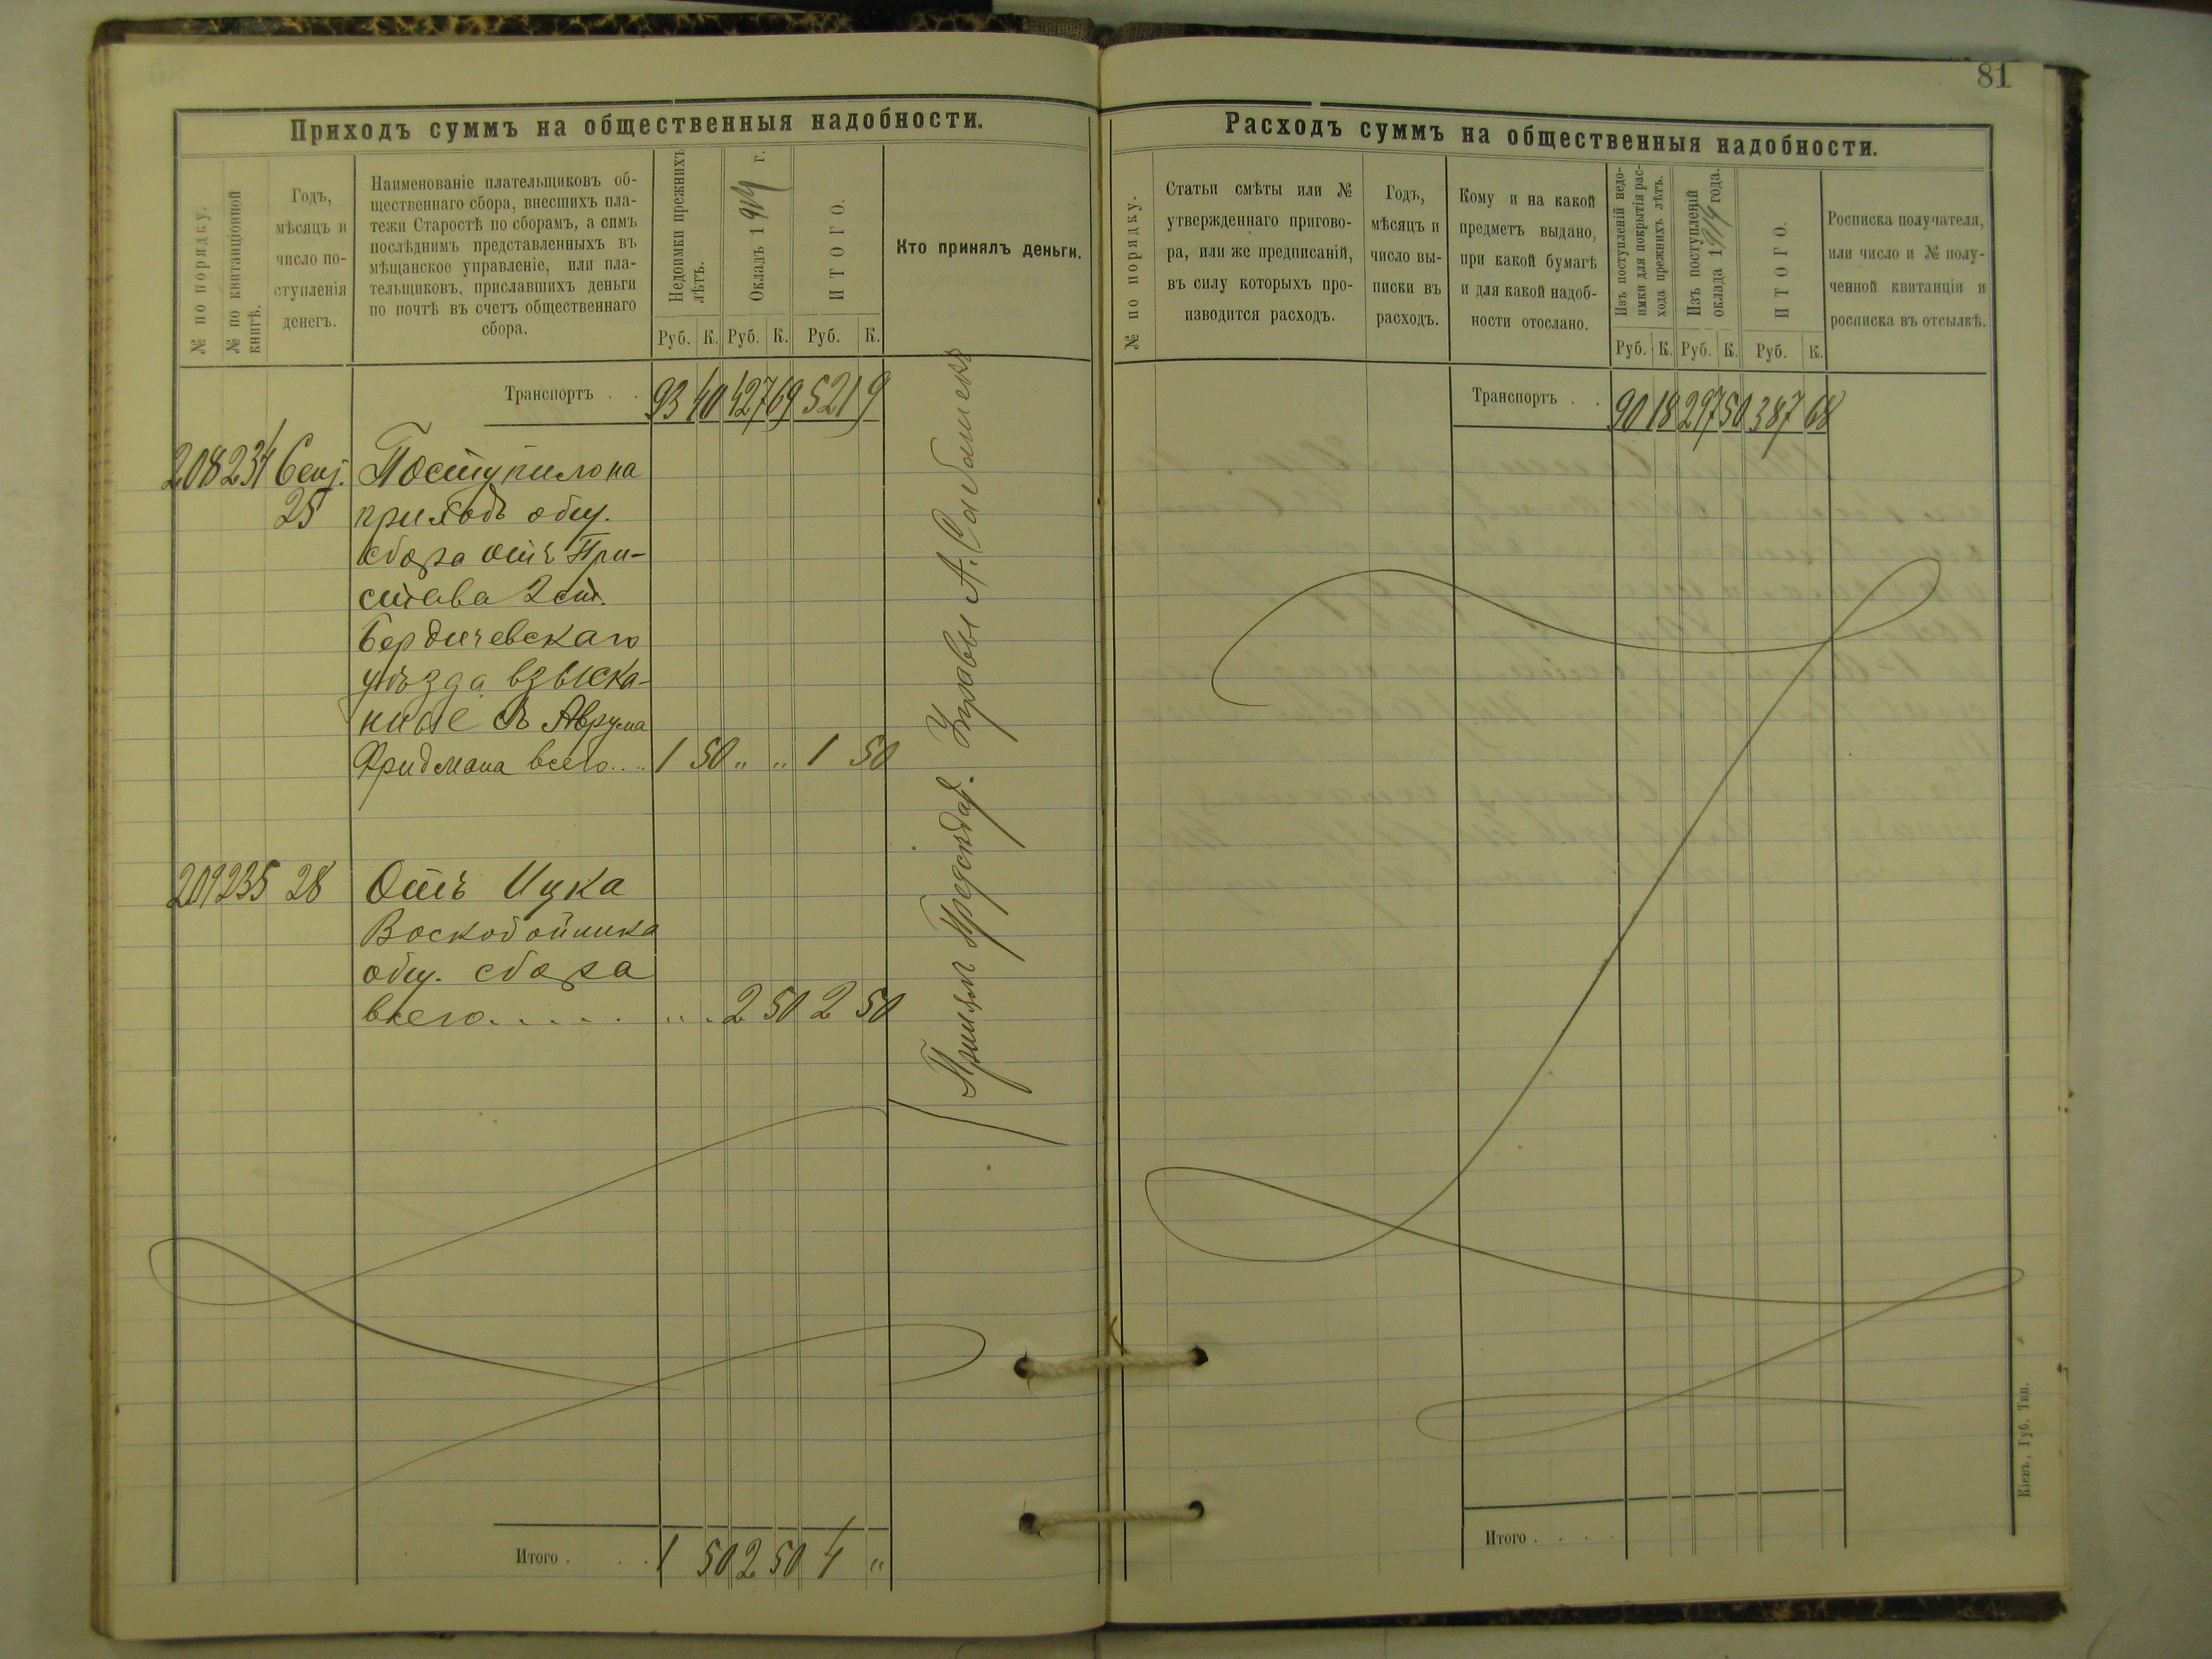 Приходъ суммъ на общественныя надобности.
№ по порядку.
№ по квитанціонной
книгѣ.
Годъ,
мѣсяцъ и
число по-
ступленія
денегъ.
Наименованіе плательщиковъ об-
щественнаго сбора, внесшихъ пла-
тежи Старостѣ по сборамъ, а симъ
послѣднимъ представленныхъ въ
мѣщанское управленіе, или пла-
тельщиковъ, приславшихъ деньги
по почтѣ въ счетъ общественнаго
сбора.
Недоимки прежнихъ
лѣтъ.
Окладъ 1914 г.
ИТОГО.
Руб. К. Руб. К. Руб. К.
Кто принялъ деньги.
Транспортъ . . 93 40 427 69 521 9
208 234 Сент. Поступило на
25 приходъ общ.
сбора отъ При-
става 2 ст.
Бердичевскаго
уѣзда взыска-
ные съ Аврума
Фридмана всего.... 1 50 " " 1 50
209 235 28 Отъ Ицка
Воскобойника
общ. сбора
всего. . . . . . . . 2 50 2 50
Принялъ Предсѣдат. Управы А.
Итого . . . 1 50 2 50 4 "
81
Расходъ суммъ на общественныя надобности.
№ по порядку.
Статьи смѣты или №
утвержденнаго пригово-
ра, или же предписаній,
въ силу которыхъ про-
изводится расходъ.
Годъ,
мѣсяцъ и
число вы-
писки въ
расходъ.
Кому и на какой
предметъ выдано,
при какой бумагѣ
и для какой надоб-
ности отослано.
Изъ поступленій недо-
имки для покрытія рас-
хода прежнихъ лѣтъ.
Изъ поступленій
оклада 1914 года.
ИТОГО.
Руб. К. Руб. К. Руб. К.
Росписка получателя,
или число и № полу-
ченной квитанціи и
росписка въ отсылкѣ.
Транспортъ . . 90 18 297 50 387 68
Итого . . . .
Кіевъ, Губ. Тип.